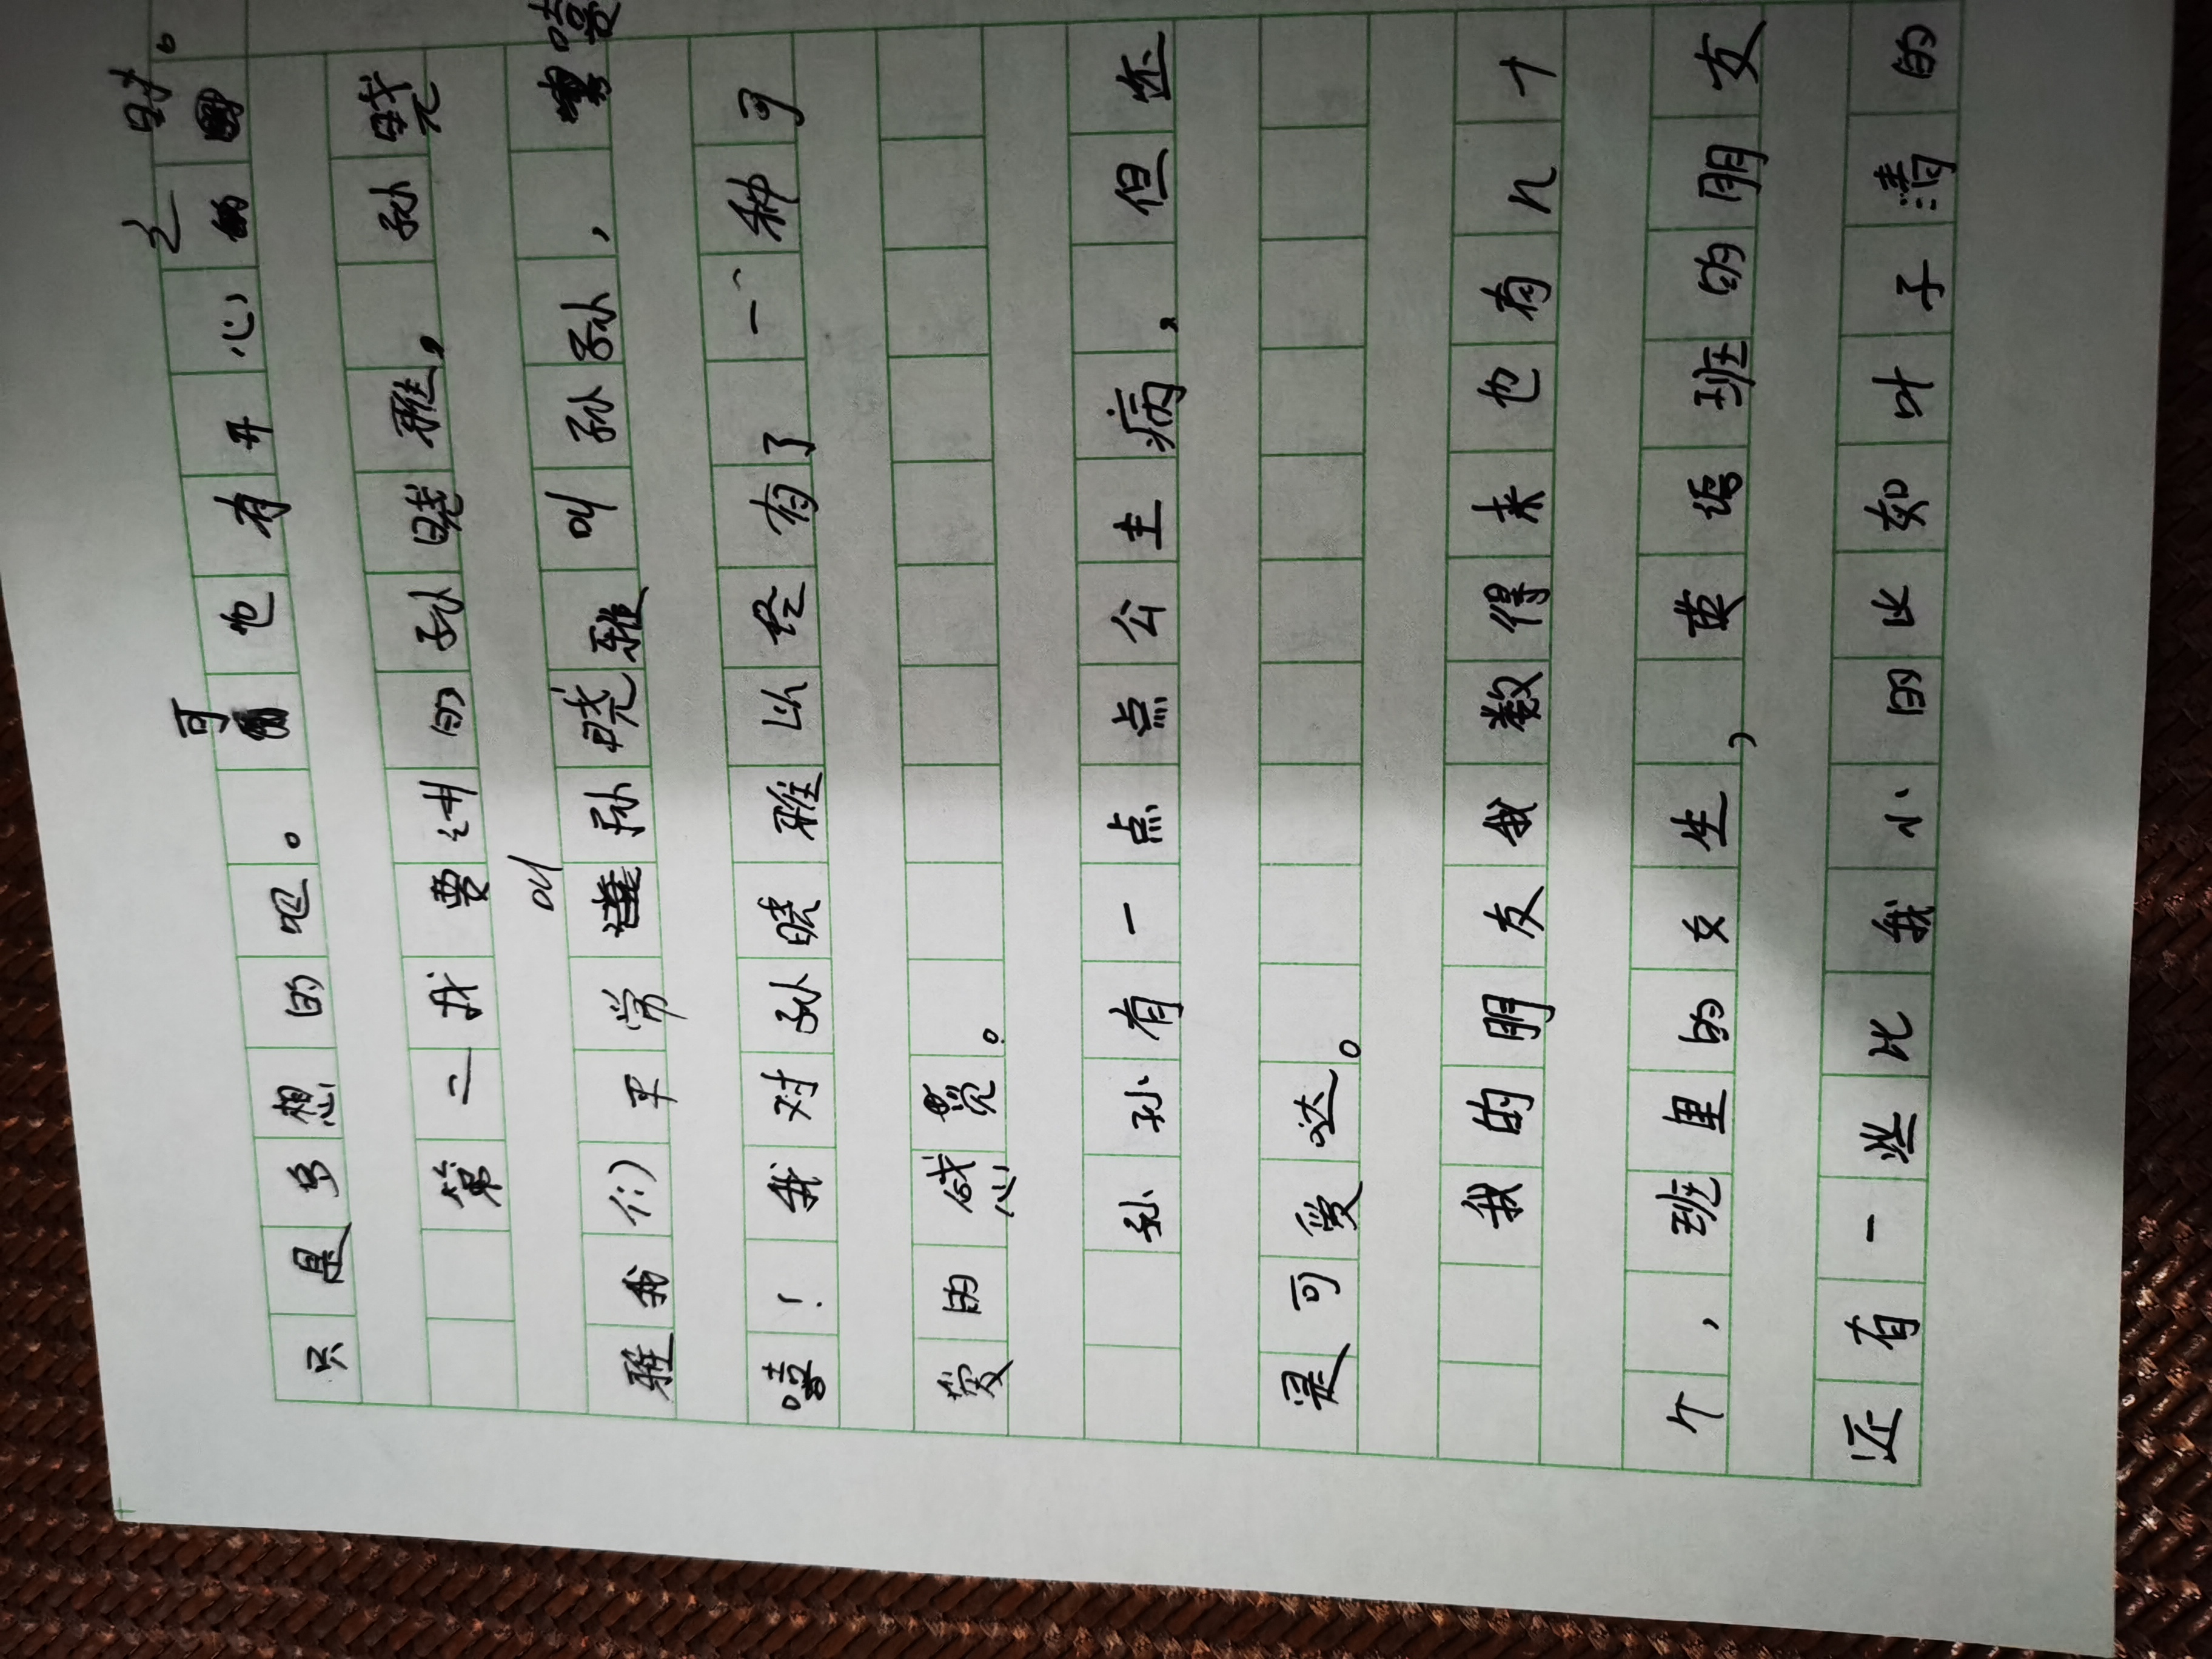 只是多想的吧。可也有开心之时。
第二我要讲的孙晓雅,孙晓
雅我们平常叫孙晓雅叫孙孙,嘻
嘻!我对孙晓雅以经有了一种可
爱的感觉。
孙孙有一点点点公主病,但还
是可爱哒。
我的朋友我数得来也有几十
个,班里的女生,英语班的朋友
还有一些比我小的比如叶子清的